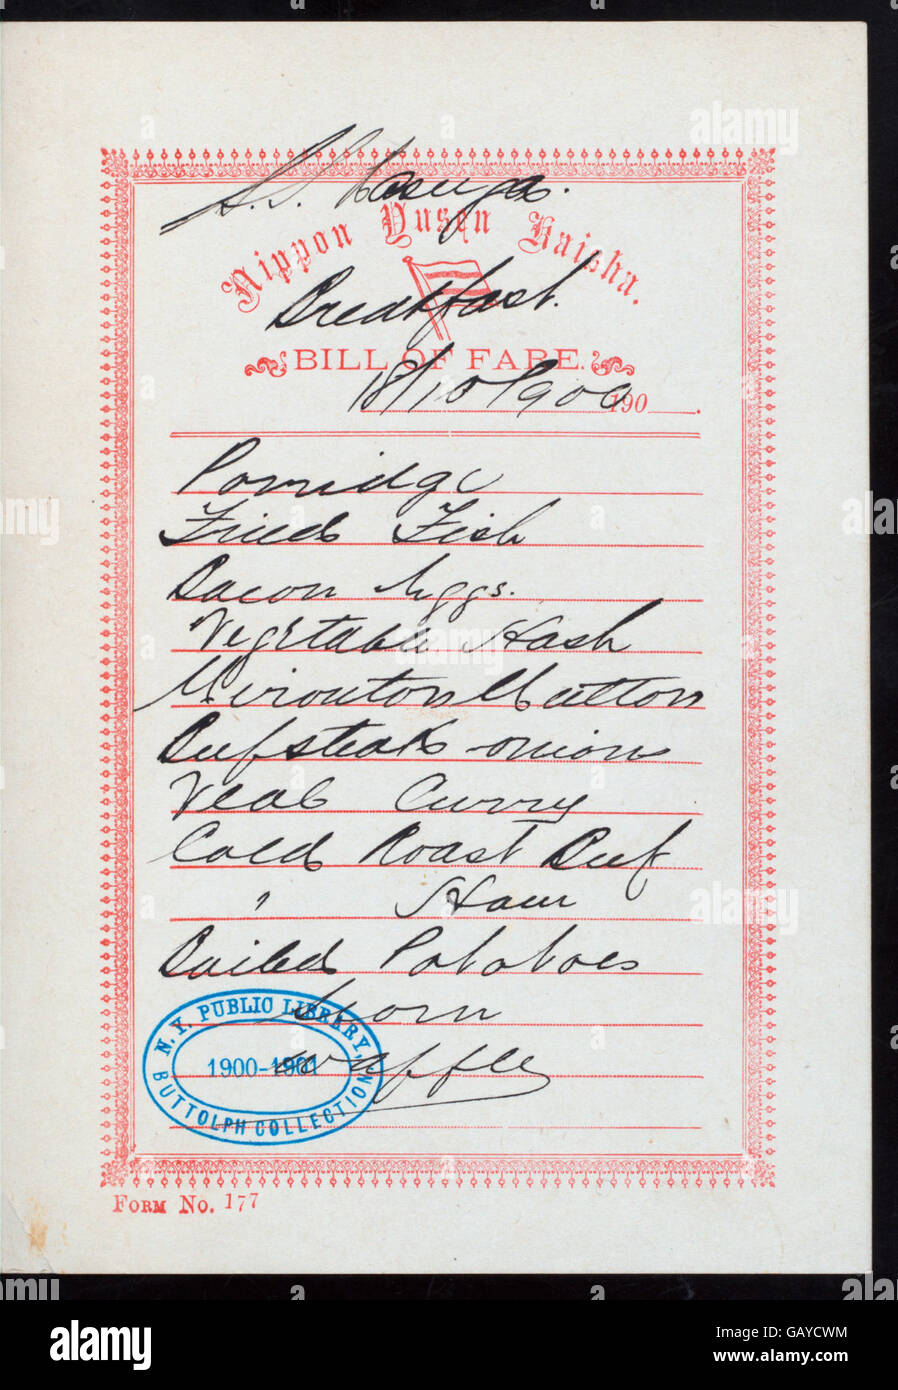 S.S. Kasuga.
Nippon Yusen Kaisha.
Breakfast.
BILL OF FARE.
18/10/1900 190
Porridge
Fried Fish
Bacon Eggs.
Vegetable Hash
Mirouton Mutton
Beefsteak onions
Veal Curry
Cold Roast Beef
" Ham
Boiled Potatoes
Corn
Waffle
N.Y. PUBLIC LIBRARY,
1900-1901
BUTTOLPH COLLECTION
FORM NO. 177
alamy
alamy
alamy
alamy
Image ID: GAYCWM
www.alamy.com